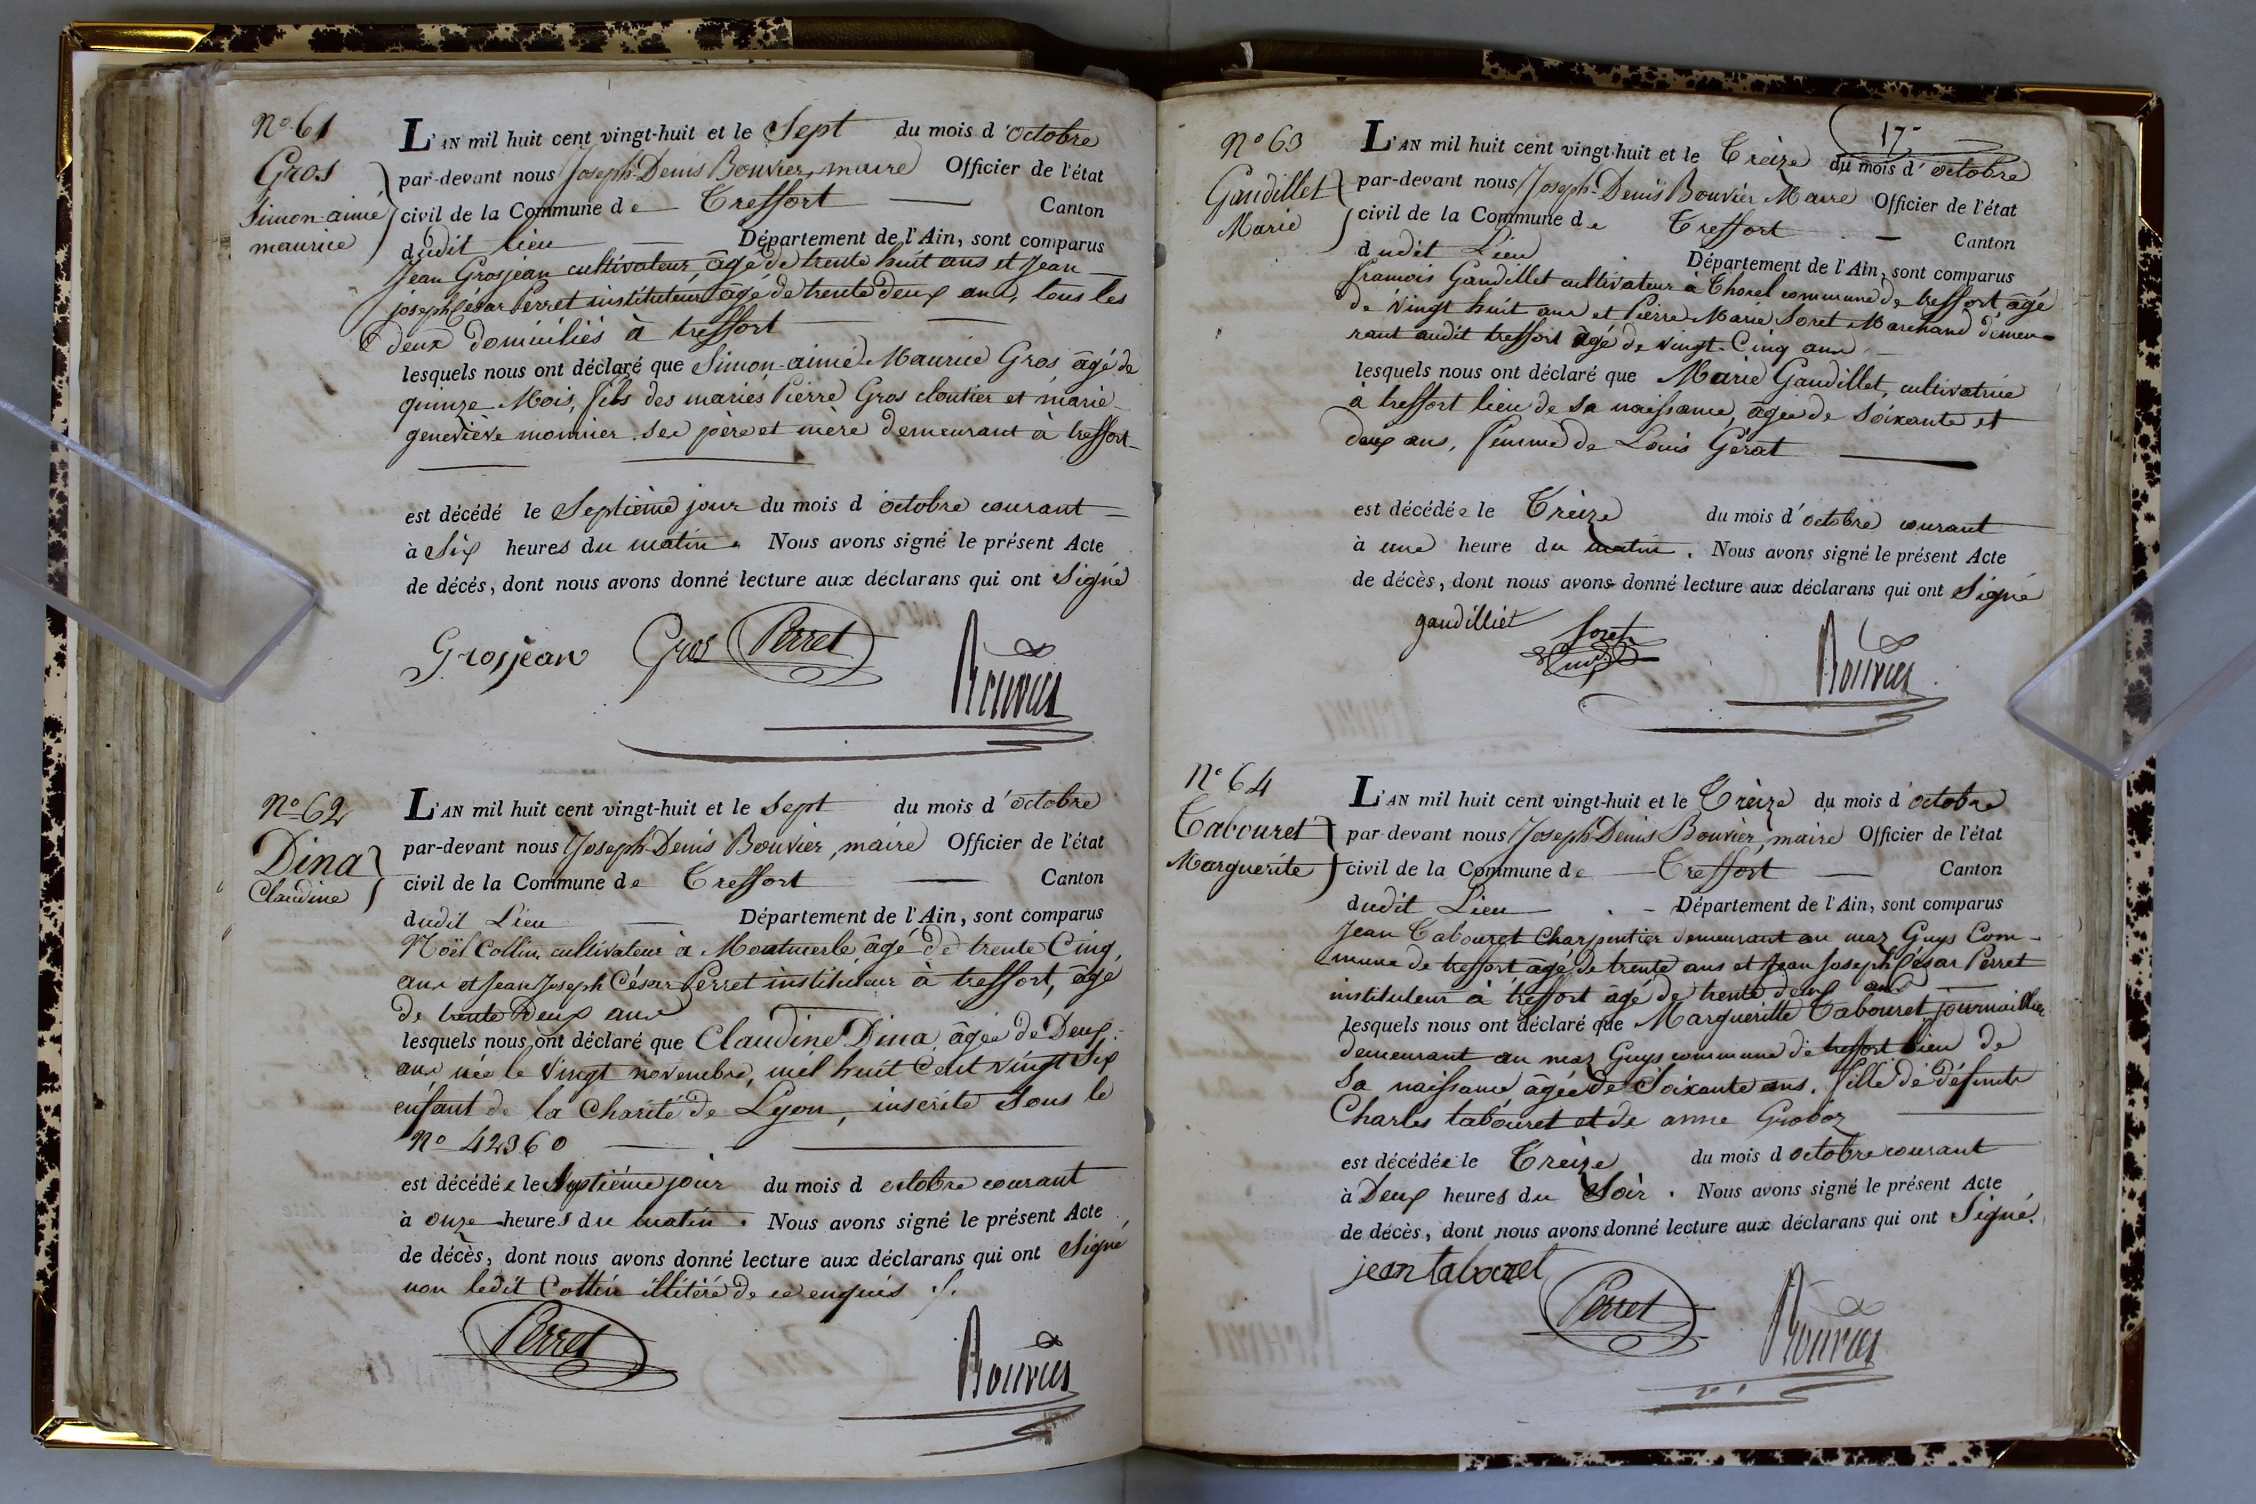 N° 61
Gros
Simon-aimé
maurice
L'AN mil huit cent vingt-huit et le Sept du mois d'octobre
par-devant nous Joseph-Denis Bouvier, maire Officier de l'état
civil de la Commune de Treffort Canton
dudit lieu Département de l'Ain, sont comparus
Jean Grosjean cultivateur, âgé de trente huit ans et Jean
joseph César Perret instituteur âgé de trente deux ans, tous les
deux domiciliés à treffort
lesquels nous ont déclaré que Simon-aimé-Maurice Gros âgé de
quinze Mois, fils des mariés Pierre Gros cloutier et marie
geneviève monnier ses père et mère demeurant à treffort
est décédé le Septième jour du mois d'octobre courant
à Six heures du matin. Nous avons signé le présent Acte
de décés, dont nous avons donné lecture aux déclarans qui ont Signé
Grosjean Gros Perret
Bouvier
N° 62
Dina
Claudine
L'AN mil huit cent vingt-huit et le Sept du mois d'octobre
par-devant nous Joseph-Denis Bouvier, maire Officier de l'état
civil de la Commune de Treffort Canton
dudit Lieu Département de l'Ain, sont comparus
Noël Cottin cultivateur à Montmerle âgé de trente Cinq
ans et Jean Joseph César Perret instituteur à treffort, âgé
de trente deux ans
lesquels nous ont déclaré que Claudine Dina, âgée de Deux
ans née le vingt novembre, mil huit Cent vingt Six
enfant de la Charité de Lyon, inscrite sous le
N° 42360
est décédée le Septième jour du mois d octobre courant
à onze heures du matin. Nous avons signé le présent Acte
de décès, dont nous avons donné lecture aux déclarans qui ont Signé
non ledit Cottin illitéré de ce enquis ./.
Perret
Bouvier
17
N° 63
Gaudillet
Marie
L'AN mil huit cent vingt-huit et le Treize du mois d'octobre
par-devant nous Joseph-Denis Bouvier Maire Officier de l'état
civil de la Commune de Treffort Canton
dudit Lieu Département de l'Ain, sont comparus
francois Gaudillet cultivateur à Thorel commune de treffort âgé
de vingt huit ans et Pierre Marie Soret Marchand demeu-
rant audit treffort âgé de vingt-Cinq ans
lesquels nous ont déclaré que Marie Gaudillet, cultivatrice
à treffort lieu de sa naissance, âgée de Soixante et
deux ans, femme de Louis Gérat
est décédée le Treize du mois d'octobre courant
à une heure du matin. Nous avons signé le présent Acte
de décès, dont nous avons donné lecture aux déclarans qui ont Signé
gaudilliet Soret
Bouvier
N° 64
Tabouret
Marguerite
L'AN mil huit cent vingt-huit et le Treize du mois d'octobre
par-devant nous Joseph-Denis Bouvier, maire Officier de l'état
civil de la Commune de Treffort Canton
dudit Lieu Département de l'Ain, sont comparus
Jean Tabouret Charpentier demeurant au maz Guys Com-
mune de treffort âgé de trente ans et Jean Joseph César Perret
instituteur à treffort âgé de trente deux ans
lesquels nous ont déclaré que Margueritte Tabouret journaillière
demeurant au maz Guys commune de treffort lieu de
sa naissance âgée de Soixante ans, fille de défunts
Charles tabouret et de anne Groboz
est décédée le Treize du mois d octobre courant
à Deux heures du Soir. Nous avons signé le présent Acte
de décès, dont nous avons donné lecture aux déclarans qui ont Signé.
jean tabouret
Perret
Bouvier